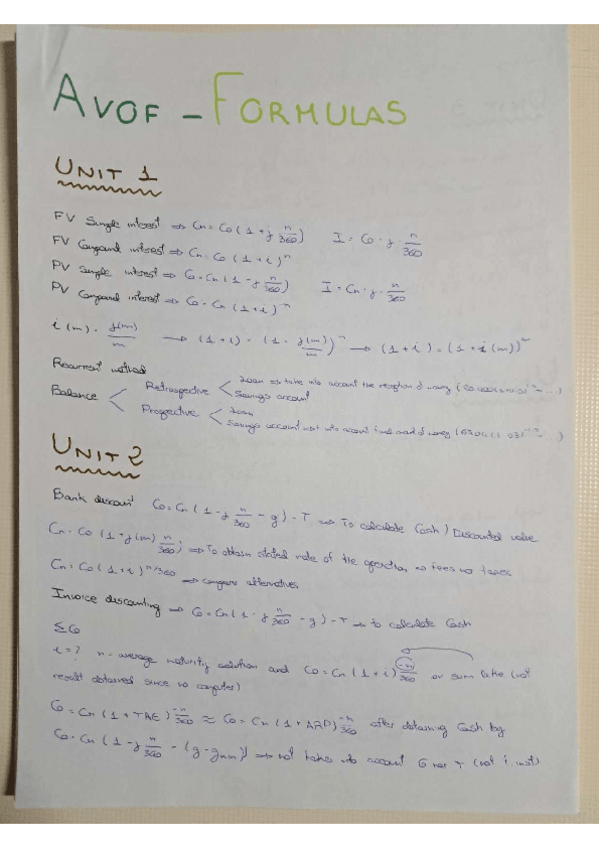 AVOF - FORMULAS
UNIT 1
FV Simple interest => Cn = Co (1 + j n/360) I = Co · j · n/360
FV Compound interest => Cn = Co (1 + i)^n
PV simple interest => Co = Cn (1 - j n/360) I = Cn · j · n/360
PV Compound interest => Co = Cn (1 + i)^-n
i(m) = j(m)/m → (1 + i) = (1 + j(m)/m)^m → (1 + i) = (1 + i(m))^m
Recurrent method
Balance < Retrospective < loan => take into account the
Savings account
Prospective < loan
Savings account not into account
UNIT 2
Bank discount Co = Cn (1 - j n/360 - g) - T => To calculate Cash / Discounted value
Cn = Co (1 + j(m) n/360) => To obtain stated rate of the operation no fees no taxes
Cn = Co (1 + i)^n/360 => compare alternatives
Invoice discounting => Co = Cn (1 - j n/360 - g) - T => to calculate Cash
ΣCo
i = ? n - average maturity solution and Co = Cn (1 + i)^-n/360 or sum (not
result obtained since no computer)
Co = Cn (1 + TAE)^-n/360 ≈ Co = Cn (1 + APR)^-n/360 after obtaining Cash by
Co = Cn (1 - j n/360 - (g - gmin)) => not takes into account G nor T (not i. inst)